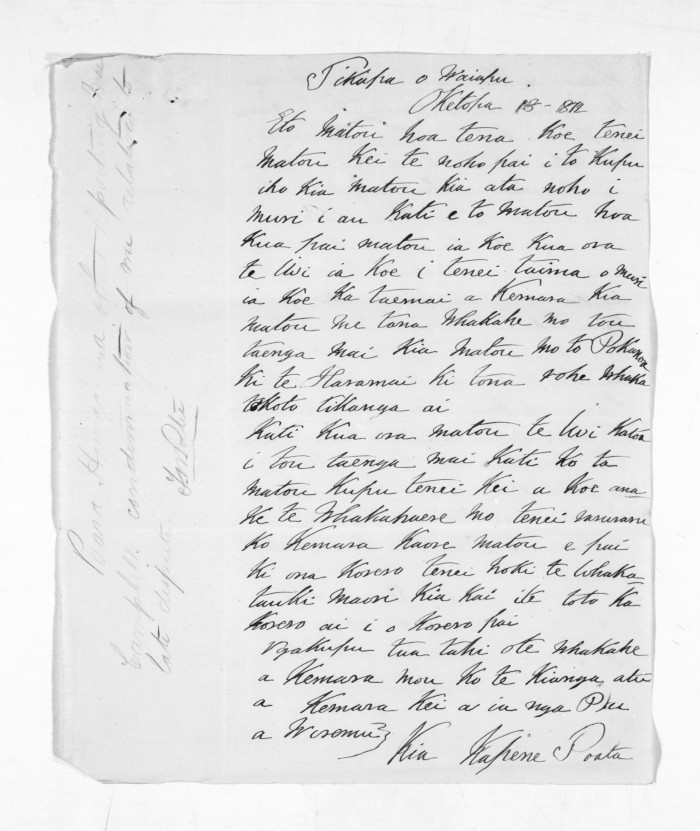 Tikapa o Waiapu
Oketopa 18 - 1872
Eto Matou hoa tena Koe tenei
Matou Kei te noho pai i to Kupu
iho Kia Matou Kia ata noho i
muri i au Kati e to Matou hoa
Kua pai matou ia Koe Kua ora
te Uwi ia Koe i tenei taima o muri
ia Koe Ka taemai a Kemara Kia
matou me tana Whakahe mo tou
taenga mai Kia Matou mo to Pokanoa
Ki te Haramai Ki tona rohe Whaka
takoto tikanga ai
Kati Kua ora matou te Uwi Katoa
i tou taenga mai Kati Ko ta
matou Kupu tenei Kei a Koe ana
Ke te Whakahaere mo tenei raruraru
Ko Kemara Kaore matou e pai
Ki ona Korero tenei hoki te Whaka
tauki maori Kia Kai ite toto Ka
Korero ai i o Korero pai
Ngakupu tua tahi ote Whakahe
a Kemara mou Ko te Kianga atu
a Kemara Kei a ia nga Piu
a Wiremu
Kia Kapene Poata
Campbells condemnation of me relative to
late dispute